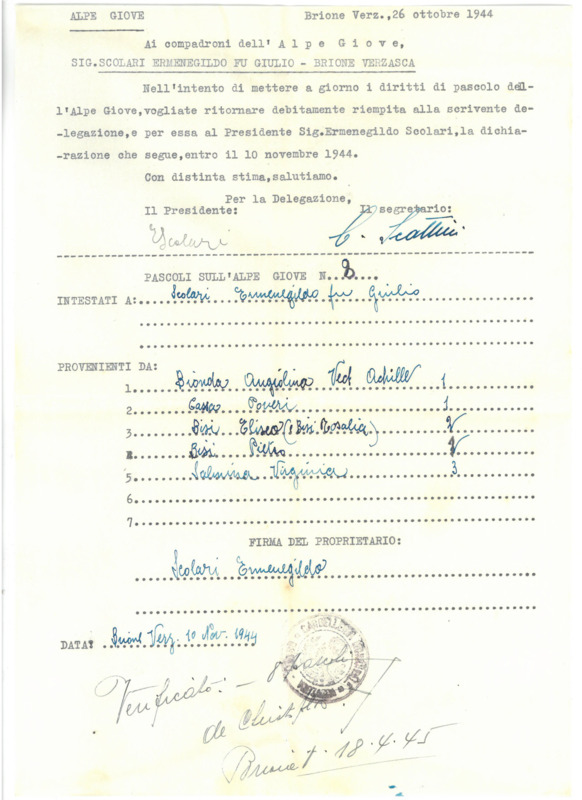 ALPE GIOVE
Brione Verz.,26 ottobre 1944
Ai compadroni dell'Alpe Giove,
SIG.SCOLARI ERMENEGILDO FU GIULIO - BRIONE VERZASCA
Nell'intento di mettere a giorno i diritti di pascolo del-
l'Alpe Giove,vogliate ritornare debitamente riempita alla scrivente de-
-legazione,e per essa al Presidente Sig.Ermenegildo Scolari,la dichia-
-razione che segue,entro il 10 novembre 1944.
Con distinta stima,salutiamo.
Per la Delegazione,
Il Presidente: Il segretario:
EScolari C. Scattini
PASCOLI SULL'ALPE GIOVE N.8....
INTESTATI A:...Scolari Ermenegildo fu Giulio
PROVENIENTI DA:
1. Bionda Angiolina Ved Achille 1
2. Cassa Poveri 1
3. Bisi Eliseo (e Bisi Rosalia) 2
Bisi Pietro
5. Virginia 3
6.
7.
FIRMA DEL PROPRIETARIO:
Scolari Ermenegildo
DATA: Brione Verz. 10 Nov. 1944
Verificato: - 8 pascoli
Brione 18.4.45